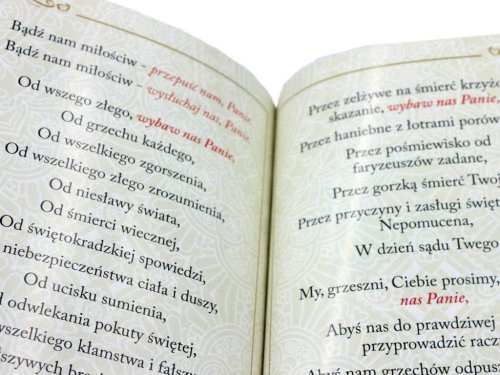 Bądź nam miłościw - przepuść nam, Panie.
Bądź nam miłościw - wysłuchaj nas, Panie.
Od wszego złego, wybaw nas Panie,
Od grzechu każdego,
Od wszelkiego zgorszenia,
Od wszelkiego złego zrozumienia,
Od niesławy świata,
Od śmierci wiecznej,
Od świętokradzkiej spowiedzi,
niebezpieczeństwa ciała i duszy,
Od ucisku sumienia,
odwlekania pokuty świętej,
wszelkiego kłamstwa i fałszy
Przez zelżywe na śmierć krzyżo
skazanie, wybaw nas Panie,
Przez haniebne z łotrami porów
Przez pośmiewisko od
faryzeuszów zadane,
Przez gorzką śmierć Twoj
Przez przyczyny i zasługi święt
Nepomucena,
W dzień sądu Twego
My, grzeszni, Ciebie prosimy,
nas Panie,
Abyś nas do prawdziwej
przyprowadzić raczy
Abyś nam grzechów odpuś